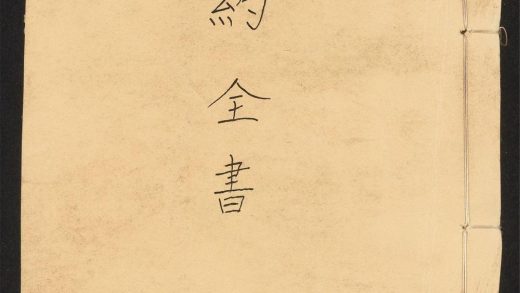 約全書